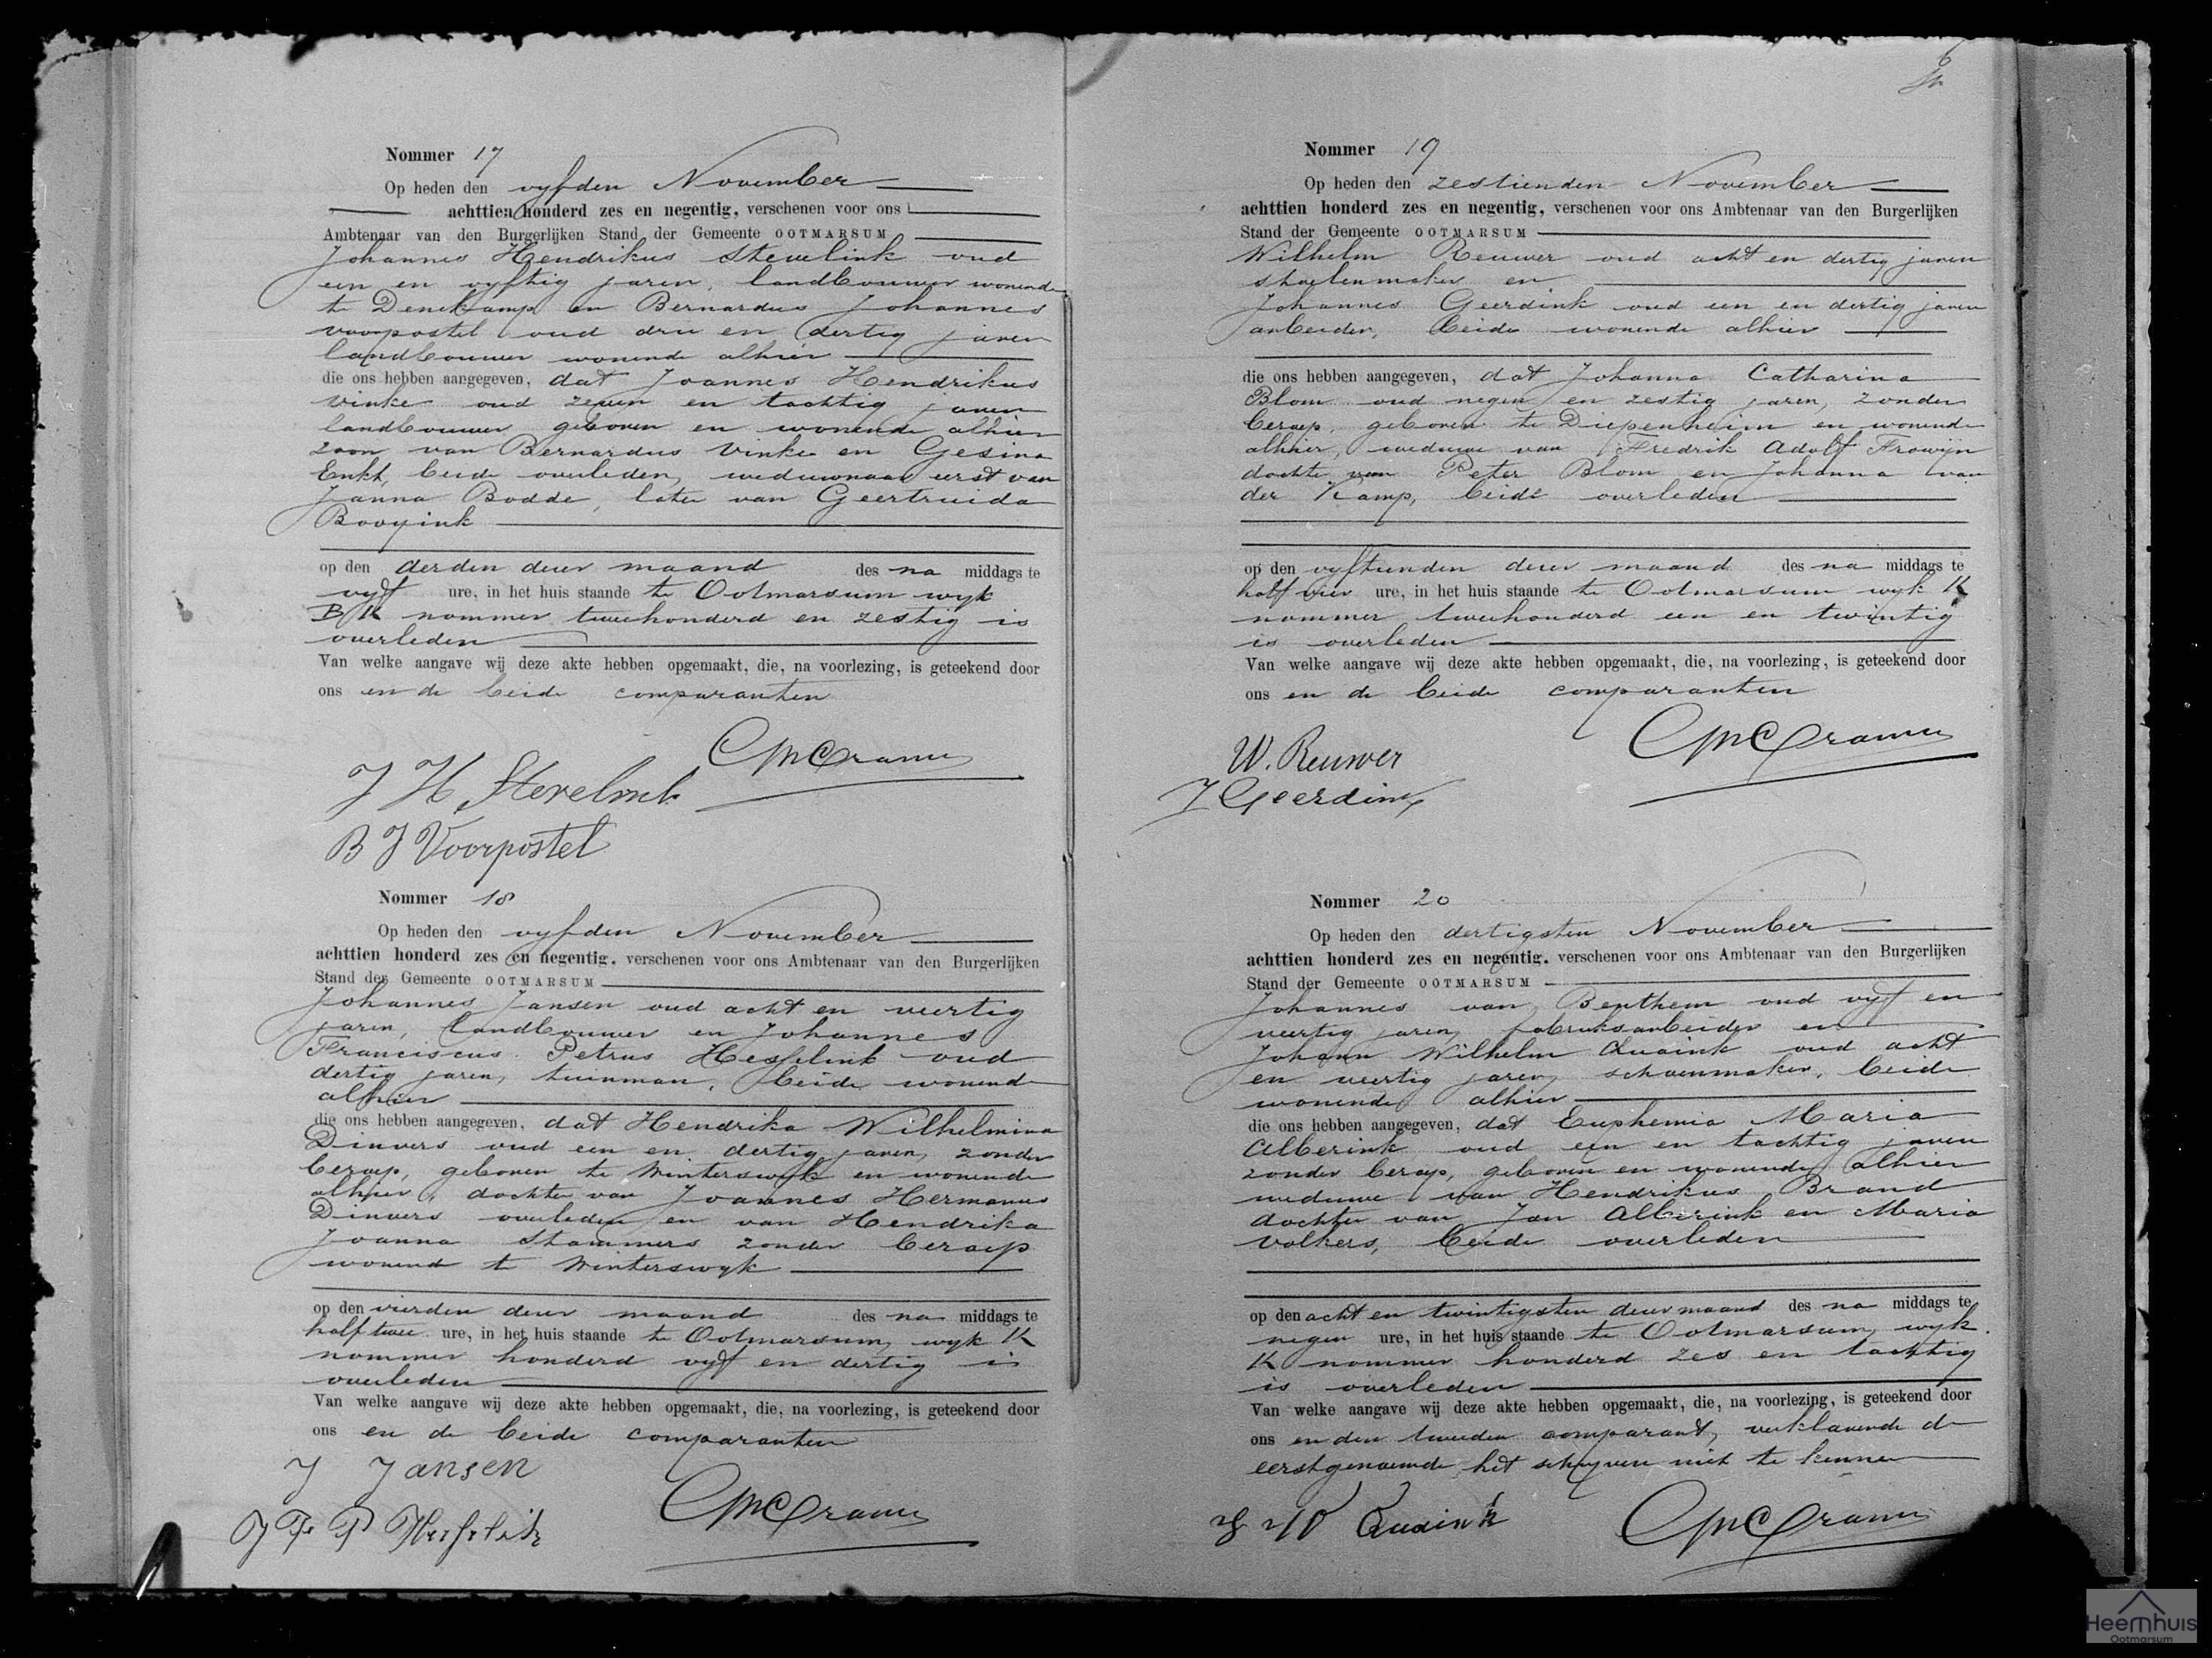 Nommer 17
Op heden den vyfden November
achttien honderd zes en negentig, verschenen voor ons
Ambtenaar van den Burgerlijken Stand der Gemeente OOTMARSUM
Johannes Hendrikus Stevelink oud
een en vyftig jaren, landbouwer wonende
te Denekamp en Bernardus Johannes
voorpostel oud drie en dertig jaren
landbouwer wonende alhier
die ons hebben aangegeven, dat Joannes Hendrikus
Vinke oud zeven en tachtig jaren
landbouwer geboren en wonende alhier
zoon van Bernardus Vinke en Gesina
Enkt, beide overleden, weduwnaar eerst van
Janna Bodde, later van Geertruida
Booyink
op den derden dezer maand des na middags te
vyf ure, in het huis staande te Ootmarsum wyk
B K nommer tweehonderd en zestig is
overleden
Van welke aangave wij deze akte hebben opgemaakt, die, na voorlezing, is geteekend door
ons en de beide comparanten
CMCramer
J H Stevelink
B J Voorpostel
Nommer 18
Op heden den vyfden November
achttien honderd zes en negentig, verschenen voor ons Ambtenaar van den Burgerlijken
Stand der Gemeente OOTMARSUM
Johannes Jansen oud acht en veertig
jaren, landbouwer en Johannes
Franciscus Petrus Hesselink oud
dertig jaren, tuinman, beide wonende
alhier
die ons hebben aangegeven, dat Hendrika Wilhelmina
Dinvers oud een en dertig jaren, zonder
beroep, geboren te Winterswyk en wonende
alhier, dochter van Joannes Hermanus
Dinvers overleden en van Hendrika
Joanna Stammers zonder beroep
wonend te Winterswyk
op den vierden dezer maand des na middags te
half twee ure, in het huis staande te Ootmarsum, wyk K
nommer honderd vyf en dertig is
overleden
Van welke aangave wij deze akte hebben opgemaakt, die, na voorlezing, is geteekend door
ons en de beide comparanten
J Jansen
CMCramer
J F P
6
Nommer 19
Op heden den zestienden November
achttien honderd zes en negentig, verschenen voor ons Ambtenaar van den Burgerlijken
Stand der Gemeente OOTMARSUM
Wilhelm Reuwer oud acht en dertig jaren
stoelenmaker en
Johannes Geerdink oud een en dertig jaren
arbeider, beide wonende alhier
die ons hebben aangegeven, dat Johanna Catharina
Blom oud negen en zestig jaren, zonder
beroep, geboren te Diepenheim en wonende
alhier, weduwe van Fredrik Adolf Frowijn
dochter van Peter Blom en Johanna van
der Kamp, beide overleden
op den vyftienden dezer maand des na middags te
half vier ure, in het huis staande te Ootmarsum wyk K
nommer tweehonderd een en twintig
is overleden
Van welke aangave wij deze akte hebben opgemaakt, die, na voorlezing, is geteekend door
ons en de beide comparanten
CMCramer
W. Reuwer
J Geerdink
Nommer 20
Op heden den dertigsten November
achttien honderd zes en negentig, verschenen voor ons Ambtenaar van den Burgerlijken
Stand der Gemeente OOTMARSUM
Johannes van Benthem oud vyf en
veertig jaren, fabrieksarbeider en
Johann Wilhelm Quaink oud acht
en veertig jaren, schoenmaker, beide
wonende alhier
die ons hebben aangegeven, dat Euphemia Maria
Alberink oud een en tachtig jaren
zonder beroep, geboren en wonende alhier
weduwe van Hendrikus Brand
dochter van Jan Alberink en Maria
Volkers, beide overleden
op den acht en twintigsten dezer maand des na middags te
negen ure, in het huis staande te Ootmarsum, wyk
K nommer honderd zes en tachtig
is overleden
Van welke aangave wij deze akte hebben opgemaakt, die, na voorlezing, is geteekend door
ons en den tweeden comparant, verklarende de
eerstgenoemde het schryven niet te kennen
J W Quaink CMCramer
Heemhuis
Ootmarsum